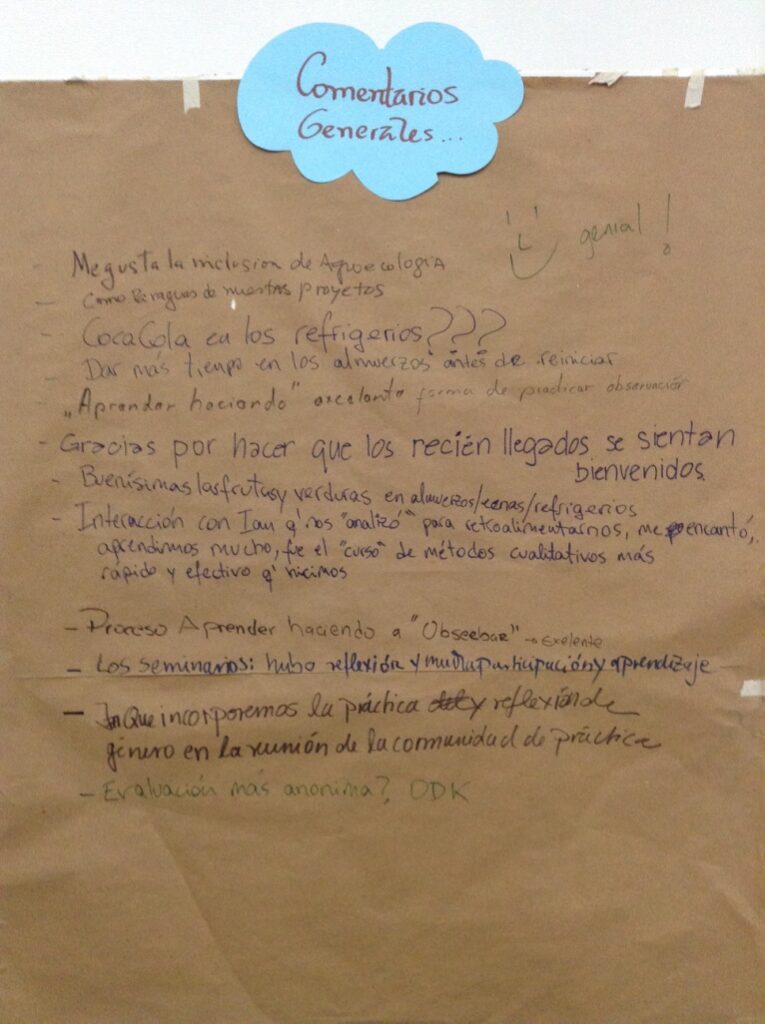 Comentarios
Generales...
genial!
- Me gusta la inclusion de Agroecología
- Como Paraguas de nuestros proyetos
- CocaCola en los refrigerios???
- Dar más tiempo en los almuerzos antes de reiniciar
- "Aprender haciendo" excelente forma de practicar observación
- Gracias por hacer que los recién llegados se sientan
bienvenidos.
- Buenísimas las frutas y verduras en almuerzos/cenas/refrigerios
- Interacción con Ian q' nos "analizó" para retroalimentarnos, me encantó,
aprendimos mucho, fue el "curso" de métodos cualitativos más
rápido y efectivo q' hicimos
- Proceso Aprender haciendo a "Obseebar" → exelente
- Los seminarios: hubo reflexión y mucha participación y aprendizaje
- Que incorporemos la práctica y reflexión de
género en la reunión de la comunidad de práctica
- Evaluación más anonima?, ODK